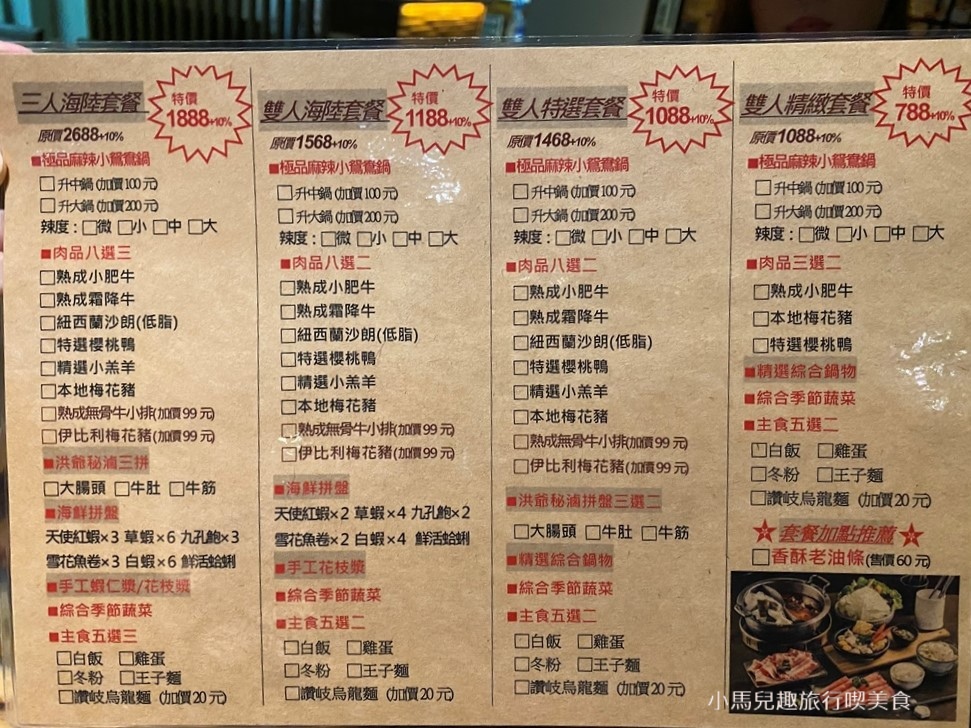 三人海陸套餐
特價
1888+10%
原價2688+10%
■極品麻辣小鴛鴦鍋
□升中鍋(加價100元)
□升大鍋(加價200元)
辣度:□微 □小 □中 □大
■肉品八選三
□熟成小肥牛
□熟成霜降牛
□紐西蘭沙朗(低脂)
□特選櫻桃鴨
□精選小羔羊
□本地梅花豬
□熟成無骨牛小排(加價99元)
□伊比利梅花豬(加價99元)
■洪爺秘滷三拼
□大腸頭 □牛肚 □牛筋
■海鮮拼盤
天使紅蝦×3 草蝦×6 九孔鮑×3
雪花魚卷×3 白蝦×6 鮮活蛤蜊
■手工蝦仁漿/花枝漿
■綜合季節蔬菜
■主食五選三
□白飯 □雞蛋
□冬粉 □王子麵
□讚岐烏龍麵 (加價20元)
雙人海陸套餐
特價
1188+10%
原價1568+10%
■極品麻辣小鴛鴦鍋
□升中鍋(加價100元)
□升大鍋(加價200元)
辣度:□微 □小 □中 □大
■肉品八選二
□熟成小肥牛
□熟成霜降牛
□紐西蘭沙朗(低脂)
□特選櫻桃鴨
□精選小羔羊
□本地梅花豬
□熟成無骨牛小排(加價99元)
□伊比利梅花豬(加價99元)
■海鮮拼盤
天使紅蝦×2 草蝦×4 九孔鮑×2
雪花魚卷×2 白蝦×4 鮮活蛤蜊
■手工花枝漿
■綜合季節蔬菜
■主食五選二
□白飯 □雞蛋
□冬粉 □王子麵
□讚岐烏龍麵 (加價20元)
雙人特選套餐
特價
1088+10%
原價1468+10%
■極品麻辣小鴛鴦鍋
□升中鍋(加價100元)
□升大鍋(加價200元)
辣度:□微 □小 □中 □大
■肉品八選二
□熟成小肥牛
□熟成霜降牛
□紐西蘭沙朗(低脂)
□特選櫻桃鴨
□精選小羔羊
□本地梅花豬
□熟成無骨牛小排(加價99元)
□伊比利梅花豬(加價99元)
■洪爺秘滷拼盤三選二
□大腸頭 □牛肚 □牛筋
■精選綜合鍋物
■綜合季節蔬菜
■主食五選二
□白飯 □雞蛋
□冬粉 □王子麵
□讚岐烏龍麵 (加價20元)
雙人精緻套餐
特價
788+10%
原價1088+10%
■極品麻辣小鴛鴦鍋
□升中鍋(加價100元)
□升大鍋(加價200元)
辣度:□微 □小 □中 □大
■肉品三選二
□熟成小肥牛
□本地梅花豬
□特選櫻桃鴨
■精選綜合鍋物
■綜合季節蔬菜
■主食五選二
□白飯 □雞蛋
□冬粉 □王子麵
□讚岐烏龍麵 (加價20元)
套餐加點推薦
□香酥老油條(售價60元)
小馬兒趣旅行喫美食